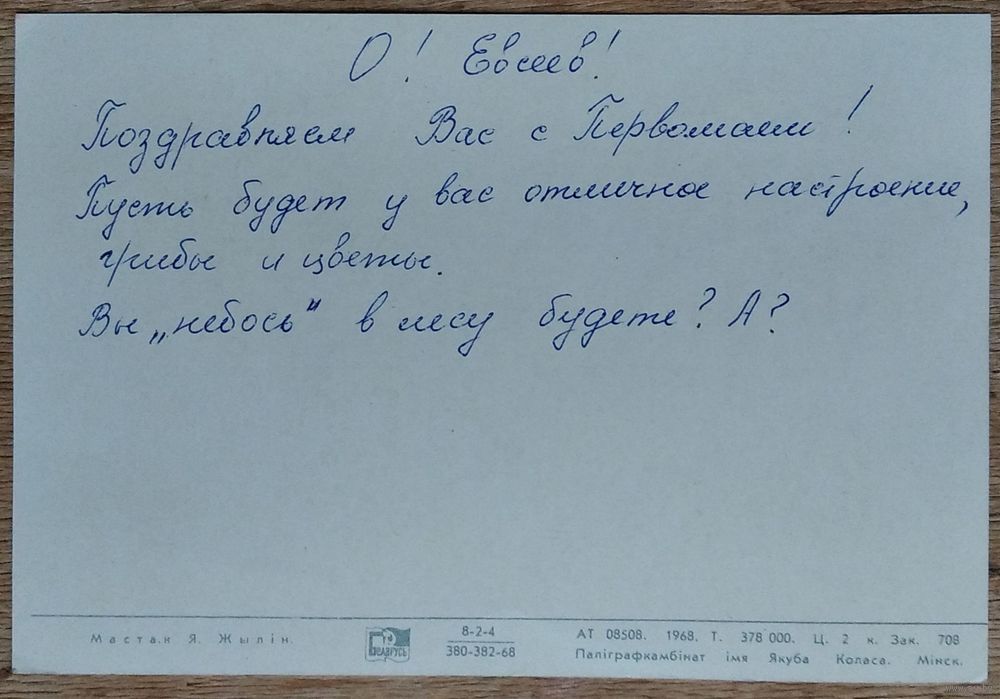 О! Евсеев!
Поздравляем Вас с Первомаем!
Пусть будет у вас отличное настроение,
грибы и цветы.
Вы „небось“ в лесу будете? А?
Мастак Я. Жылін.
БЕЛАРУСЬ
8-2-4
380-382-68
АТ 08508. 1968. Т. 378 000. Ц. 2 к. Зак. 708
Паліграфкамбінат імя Якуба Коласа. Мінск.